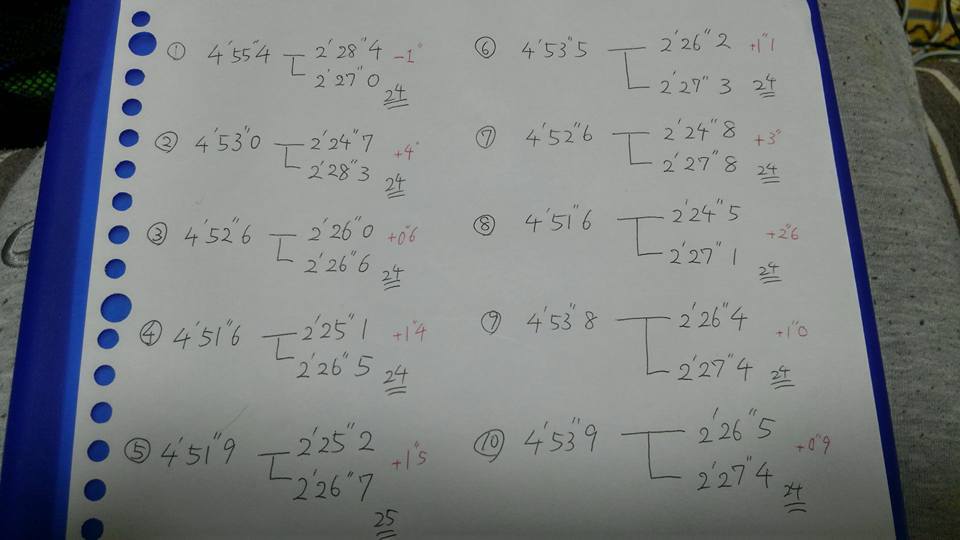 ① 4'55"4 2'28"4 -1"
2'27"0
24
② 4'53"0 2'24"7 +4"
2'28"3
24
③ 4'52"6 2'26"0 +0"6
2'26"6
24
④ 4'51"6 2'25"1 +1"4
2'26"5
24
⑤ 4'51"9 2'25"2 +1"5
2'26"7
25
⑥ 4'53"5 2'26"2 +1"1
2'27"3 24
⑦ 4'52"6 2'24"8 +3"
2'27"8 24
⑧ 4'51"6 2'24"5 +2"6
2'27"1
24
⑨ 4'53"8 2'26"4 +1"0
2'27"4 24
⑩ 4'53"9 2'26"5 +0"9
2'27"4
24